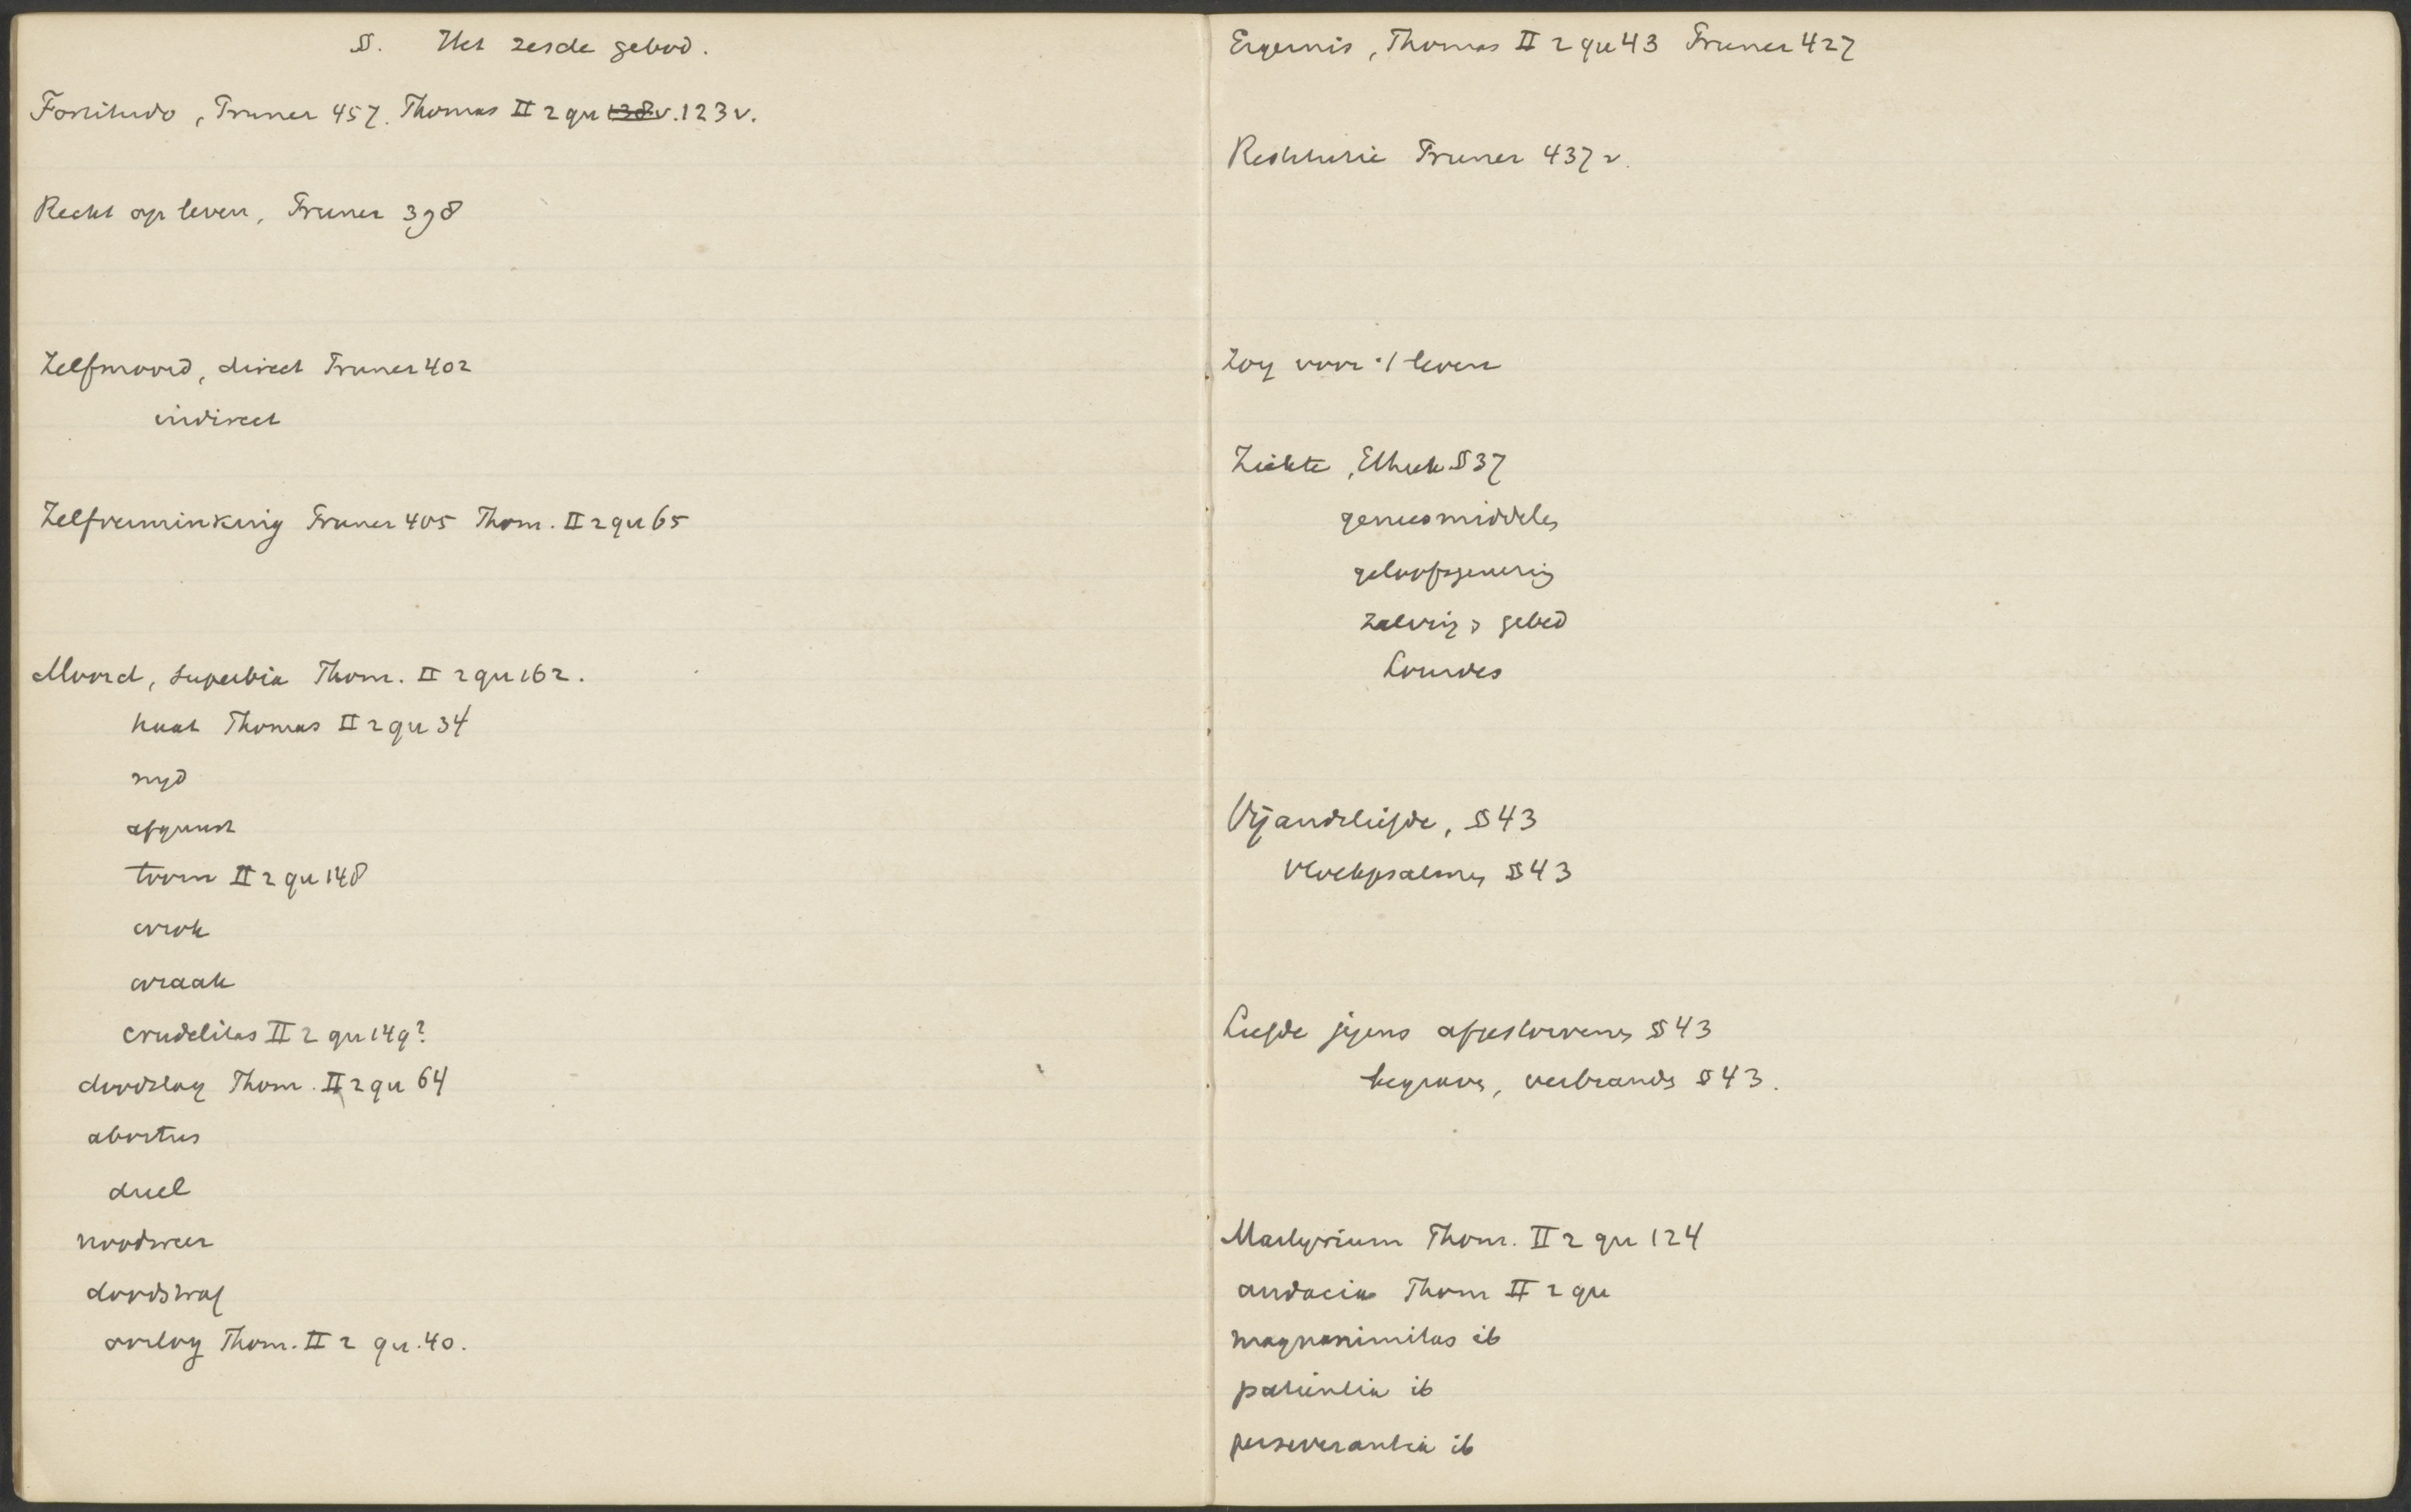 §. Het zesde gebod.
Fortitudo, Pruner 457. Thomas II 2 qu 138v. 123 v.
Recht op leven, Pruner 398
Zelfmoord, direct Pruner 402
indirect
Zelfverminking Pruner 405 Thom. II 2 qu 65
Moord, superbia Thom. II 2 qu 162.
haat Thomas II 2 qu 34
nyd
afgunst
toorn II 2 qu 148
wrok
wraak
crudelitas II 2 qu 149?
doodslag Thom. II 2 qu 64
abortus
duel
noodweer
doodstraf
oorlog Thom. II 2 qu. 40.
Ergernis, Thomas II 2 qu 43 Pruner 427
Restitutie Pruner 437 v.
Zorg voor 't leven
Ziekte, Ethiek § 37
geneesmiddelen
geloofsgenezing
zalving & gebed
Lourdes
Vijandsliefde, § 43
vloekpsalmen § 43
Liefde jegens afgestorvenen § 43
begraven, verbranden § 43.
Martyrium Thom. II 2 qu 124
audacia Thom II 2 qu
magnanimitas ib
patientia ib
perseverantia ib